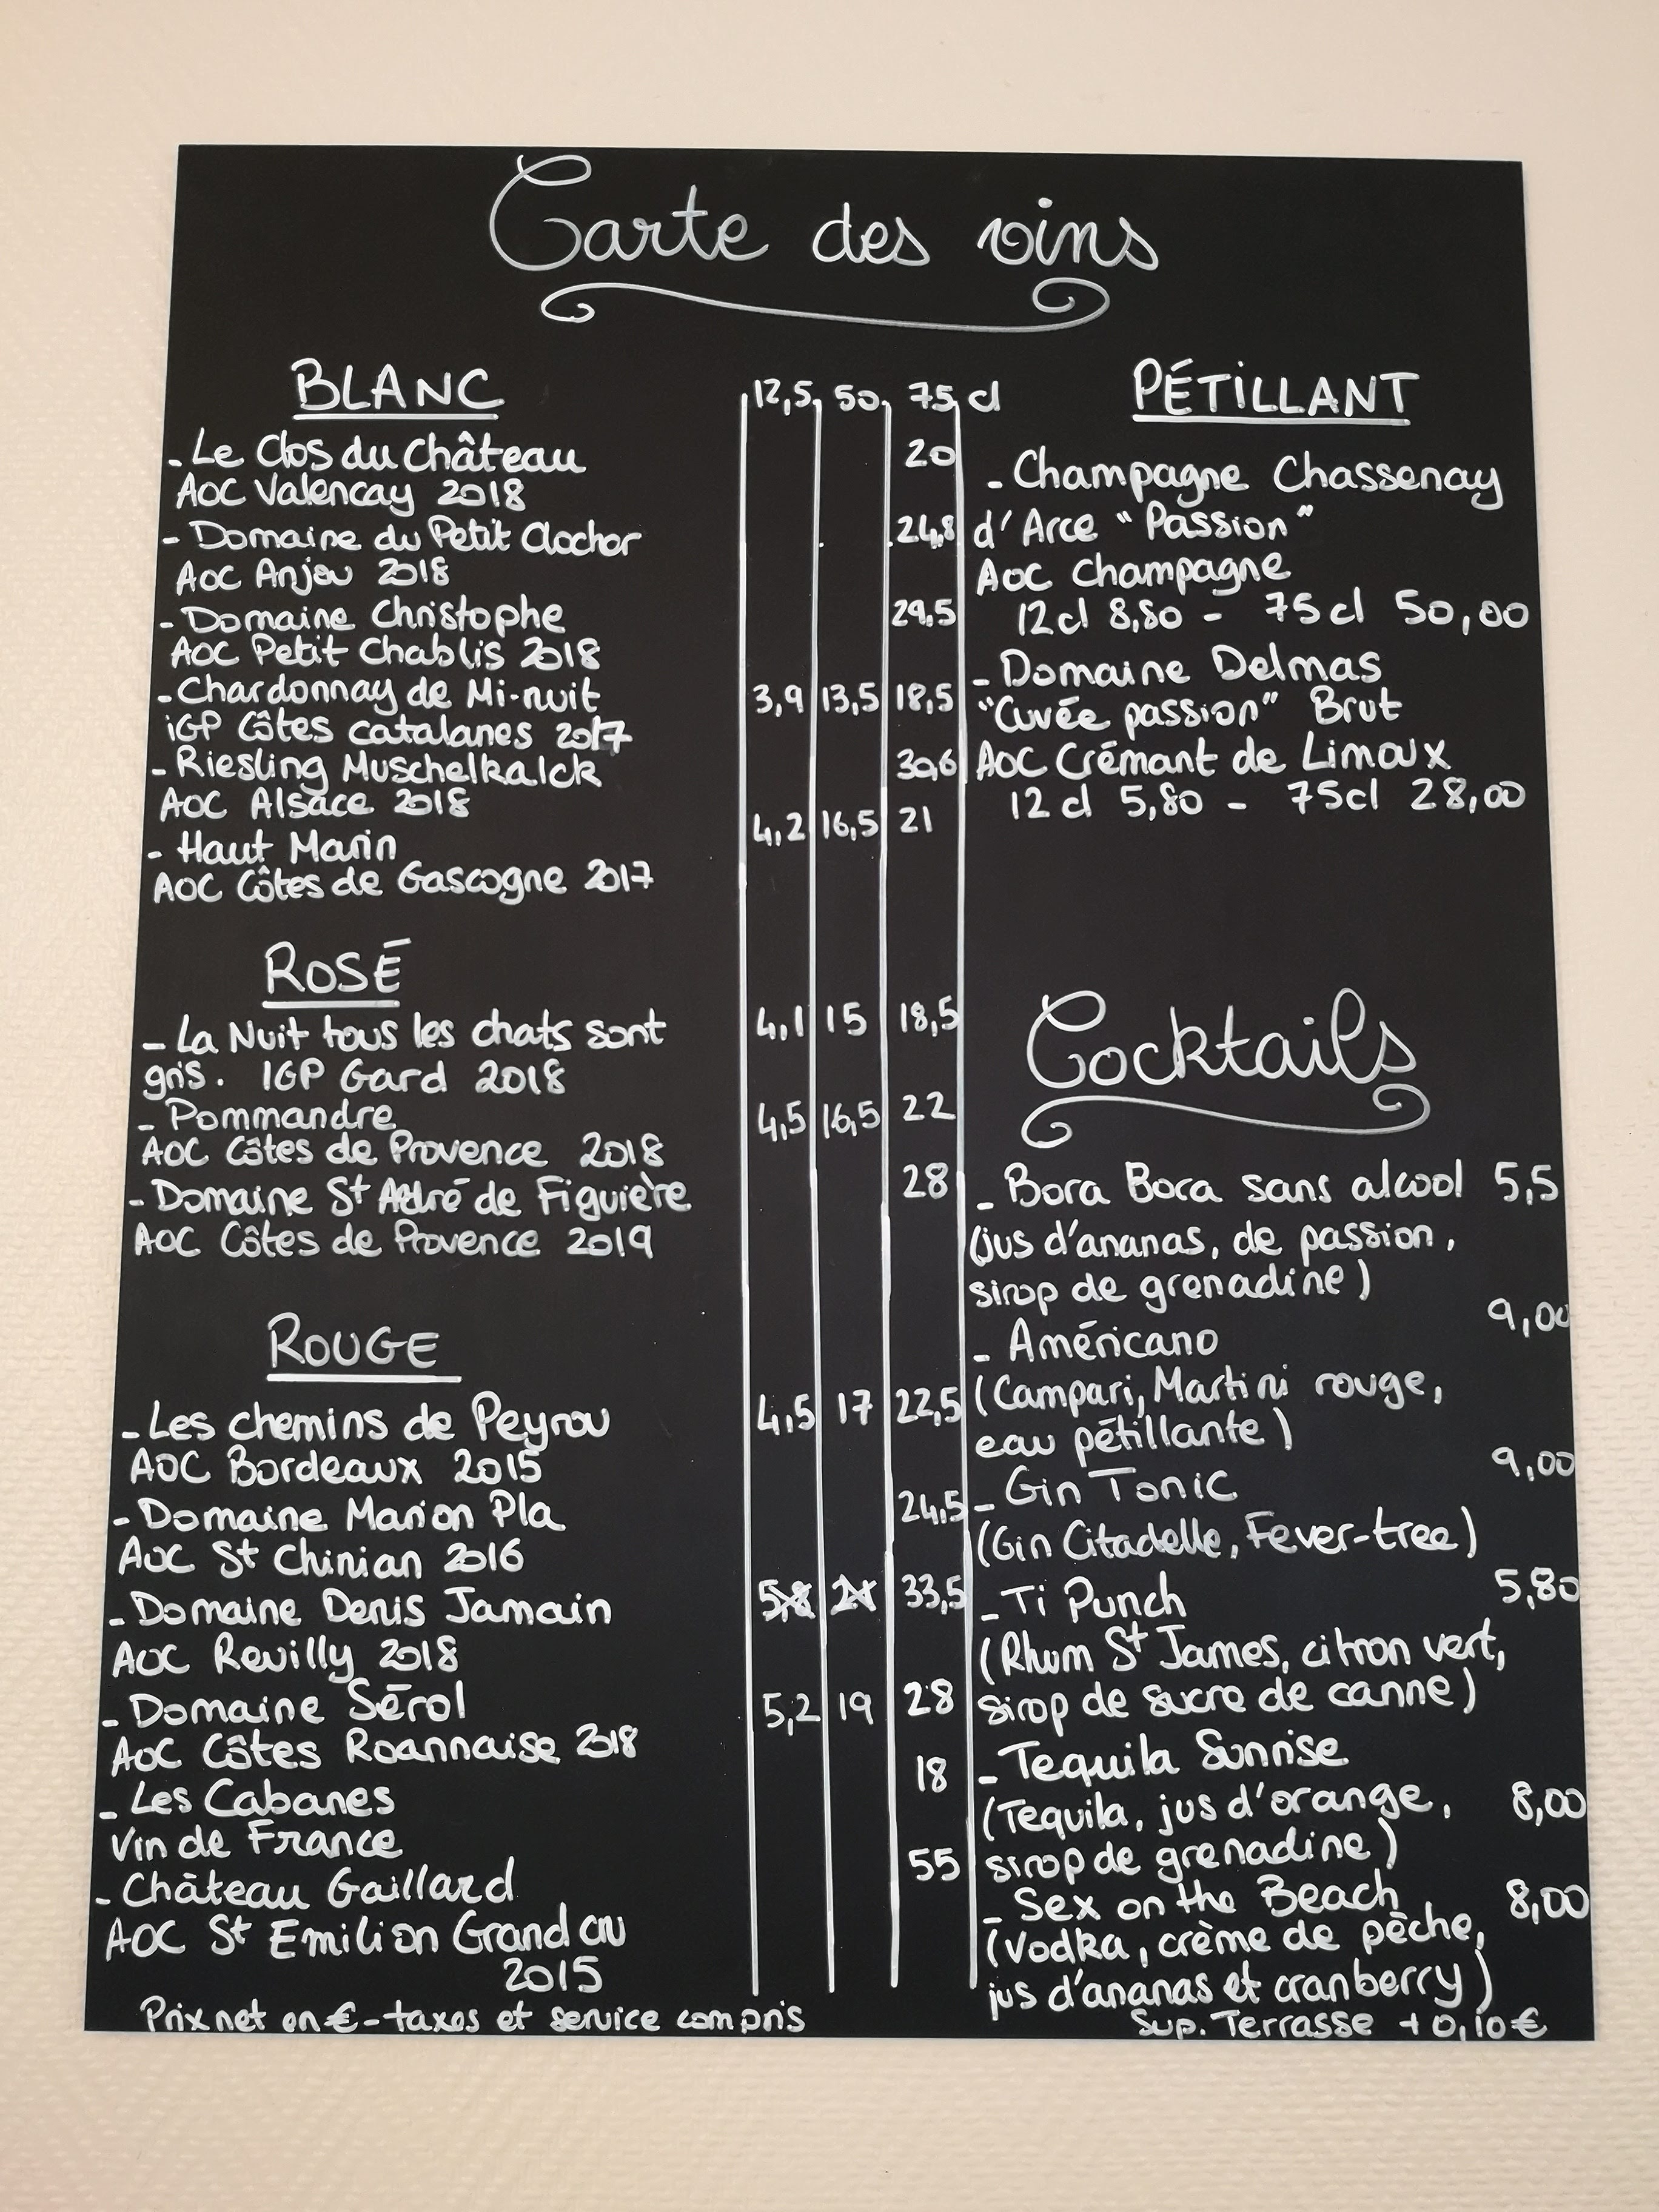 Carte des vins
BLANC
12,5 50 75 cl
- Le Clos du Château
20
AOC Valencay 2018
- Domaine du Petit Clocher
24,8
AOC Anjou 2018
- Domaine Christophe
29,5
AOC Petit Chablis 2018
- Chardonnay de Mi-nuit
3,9 13,5 18,5
iGP Côtes catalanes 2017
- Riesling Muschelkalck
30,6
AOC Alsace 2018
- Haut Marin
4,2 16,5 21
AOC Côtes de Gascogne 2017
ROSÉ
- La Nuit tous les chats sont
4,1 15 18,5
gris. IGP Gard 2018
- Pommandre
4,5 16,5 22
AOC Côtes de Provence 2018
- Domaine St André de Figuière
28
AOC Côtes de Provence 2019
ROUGE
- Les chemins de Peyrou
4,5 17 22,5
AOC Bordeaux 2015
- Domaine Marion Pla
24,5
AOC St Chinian 2016
- Domaine Denis Jamain
33,5
AOC Reuilly 2018
- Domaine Sérol
5,2 19 28
AOC Côtes Roannaise 2018
- Les Cabanes
18
Vin de France
- Château Gaillard
55
AOC St Emilion Grand cru
2015
Prix net en € - taxes et service compris
PÉTILLANT
- Champagne Chassenay
d'Arce "Passion"
AOC Champagne
12cl 8,80 - 75cl 50,00
- Domaine Delmas
"Cuvée passion" Brut
AOC Crémant de Limoux
12 cl 5,80 - 75cl 28,00
Cocktails
- Bora Bora sans alcool 5,5
(jus d'ananas, de passion,
sirop de grenadine)
- Américano 9,00
(Campari, Martini rouge,
eau pétillante)
- Gin Tonic 9,00
(Gin Citadelle, Fever-tree)
- Ti Punch 5,80
(Rhum St James, citron vert,
sirop de sucre de canne)
- Tequila Sunrise
(Tequila, jus d'orange, 8,00
sirop de grenadine)
- Sex on the Beach 8,00
(Vodka, crème de pêche,
jus d'ananas et cranberry)
Sup. Terrasse + 0,10 €